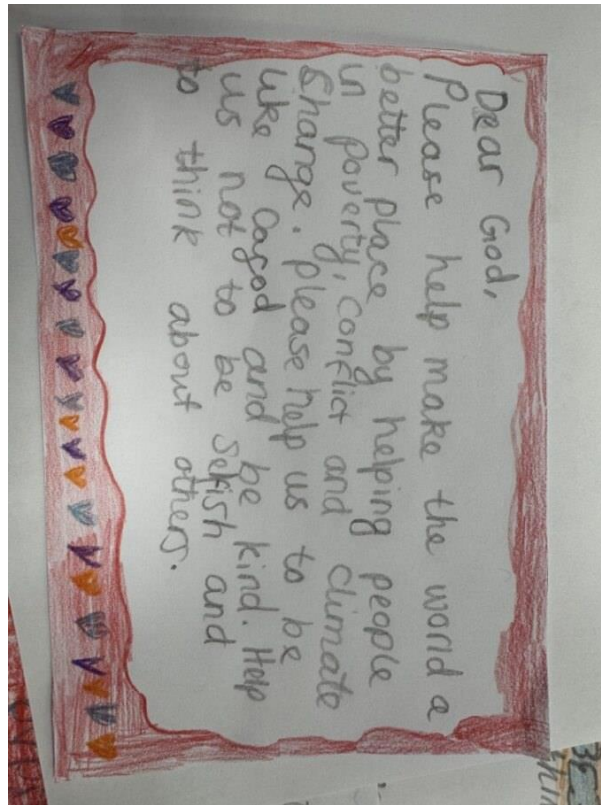 Dear God,
Please help make the world a
better place by helping people
in poverty, conflict and climate
change. please help us to be
like cagod and be kind. Help
us not to be selfish and
to think about others.